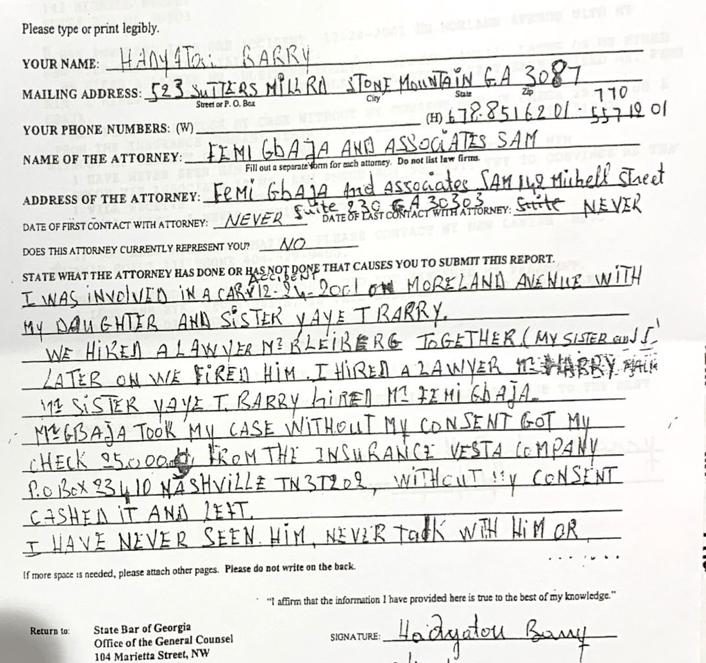 Please type or print legibly.
YOUR NAME: HADYATOU BARRY
MAILING ADDRESS: 523 SUTTERS MILL RD STONE MOUNTAIN GA 3087
Street or P. O. Box City State Zip
770
YOUR PHONE NUMBERS: (W) (H) 678.8516201 - 5571201
NAME OF THE ATTORNEY: FEMI GBAJA AND ASSOCIATES SAM
Fill out a separate form for each attorney. Do not list law firms.
ADDRESS OF THE ATTORNEY: FEMI GBAJA And Associates SAM 142 Michell Street
Suite 230 GA 30303
DATE OF FIRST CONTACT WITH ATTORNEY: NEVER DATE OF LAST CONTACT WITH ATTORNEY: Suite NEVER
DOES THIS ATTORNEY CURRENTLY REPRESENT YOU? NO
STATE WHAT THE ATTORNEY HAS DONE OR HAS NOT DONE THAT CAUSES YOU TO SUBMIT THIS REPORT.
ACCIDENT
I WAS INVOLVED IN A CAR 12-24-2001 ON MORELAND AVENUE WITH
MY DAUGHTER AND SISTER YAYE T BARRY.
WE HIRED A LAWYER Mr BLEIBERG TOGETHER (MY SISTER and I)
LATER ON WE FIRED HIM. I HIRED A LAWYER Mr HARRY
SISTER YAYE T. BARRY HIRED Mr FEMI GBAJA.
Mr GBAJA TOOK MY CASE WITHOUT MY CONSENT GOT MY
CHECK 25,000.0 FROM THE INSURANCE VESTA COMPANY
P.O BOX 23410 NASHVILLE TN 37202, WITHOUT MY CONSENT
CASHED IT AND LEFT.
I HAVE NEVER SEEN HIM, NEVER TALK WITH HIM OR
If more space is needed, please attach other pages. Please do not write on the back.
"I affirm that the information I have provided here is true to the best of my knowledge."
Return to: State Bar of Georgia
Office of the General Counsel
104 Marietta Street, NW
SIGNATURE: Hadyatou Barry